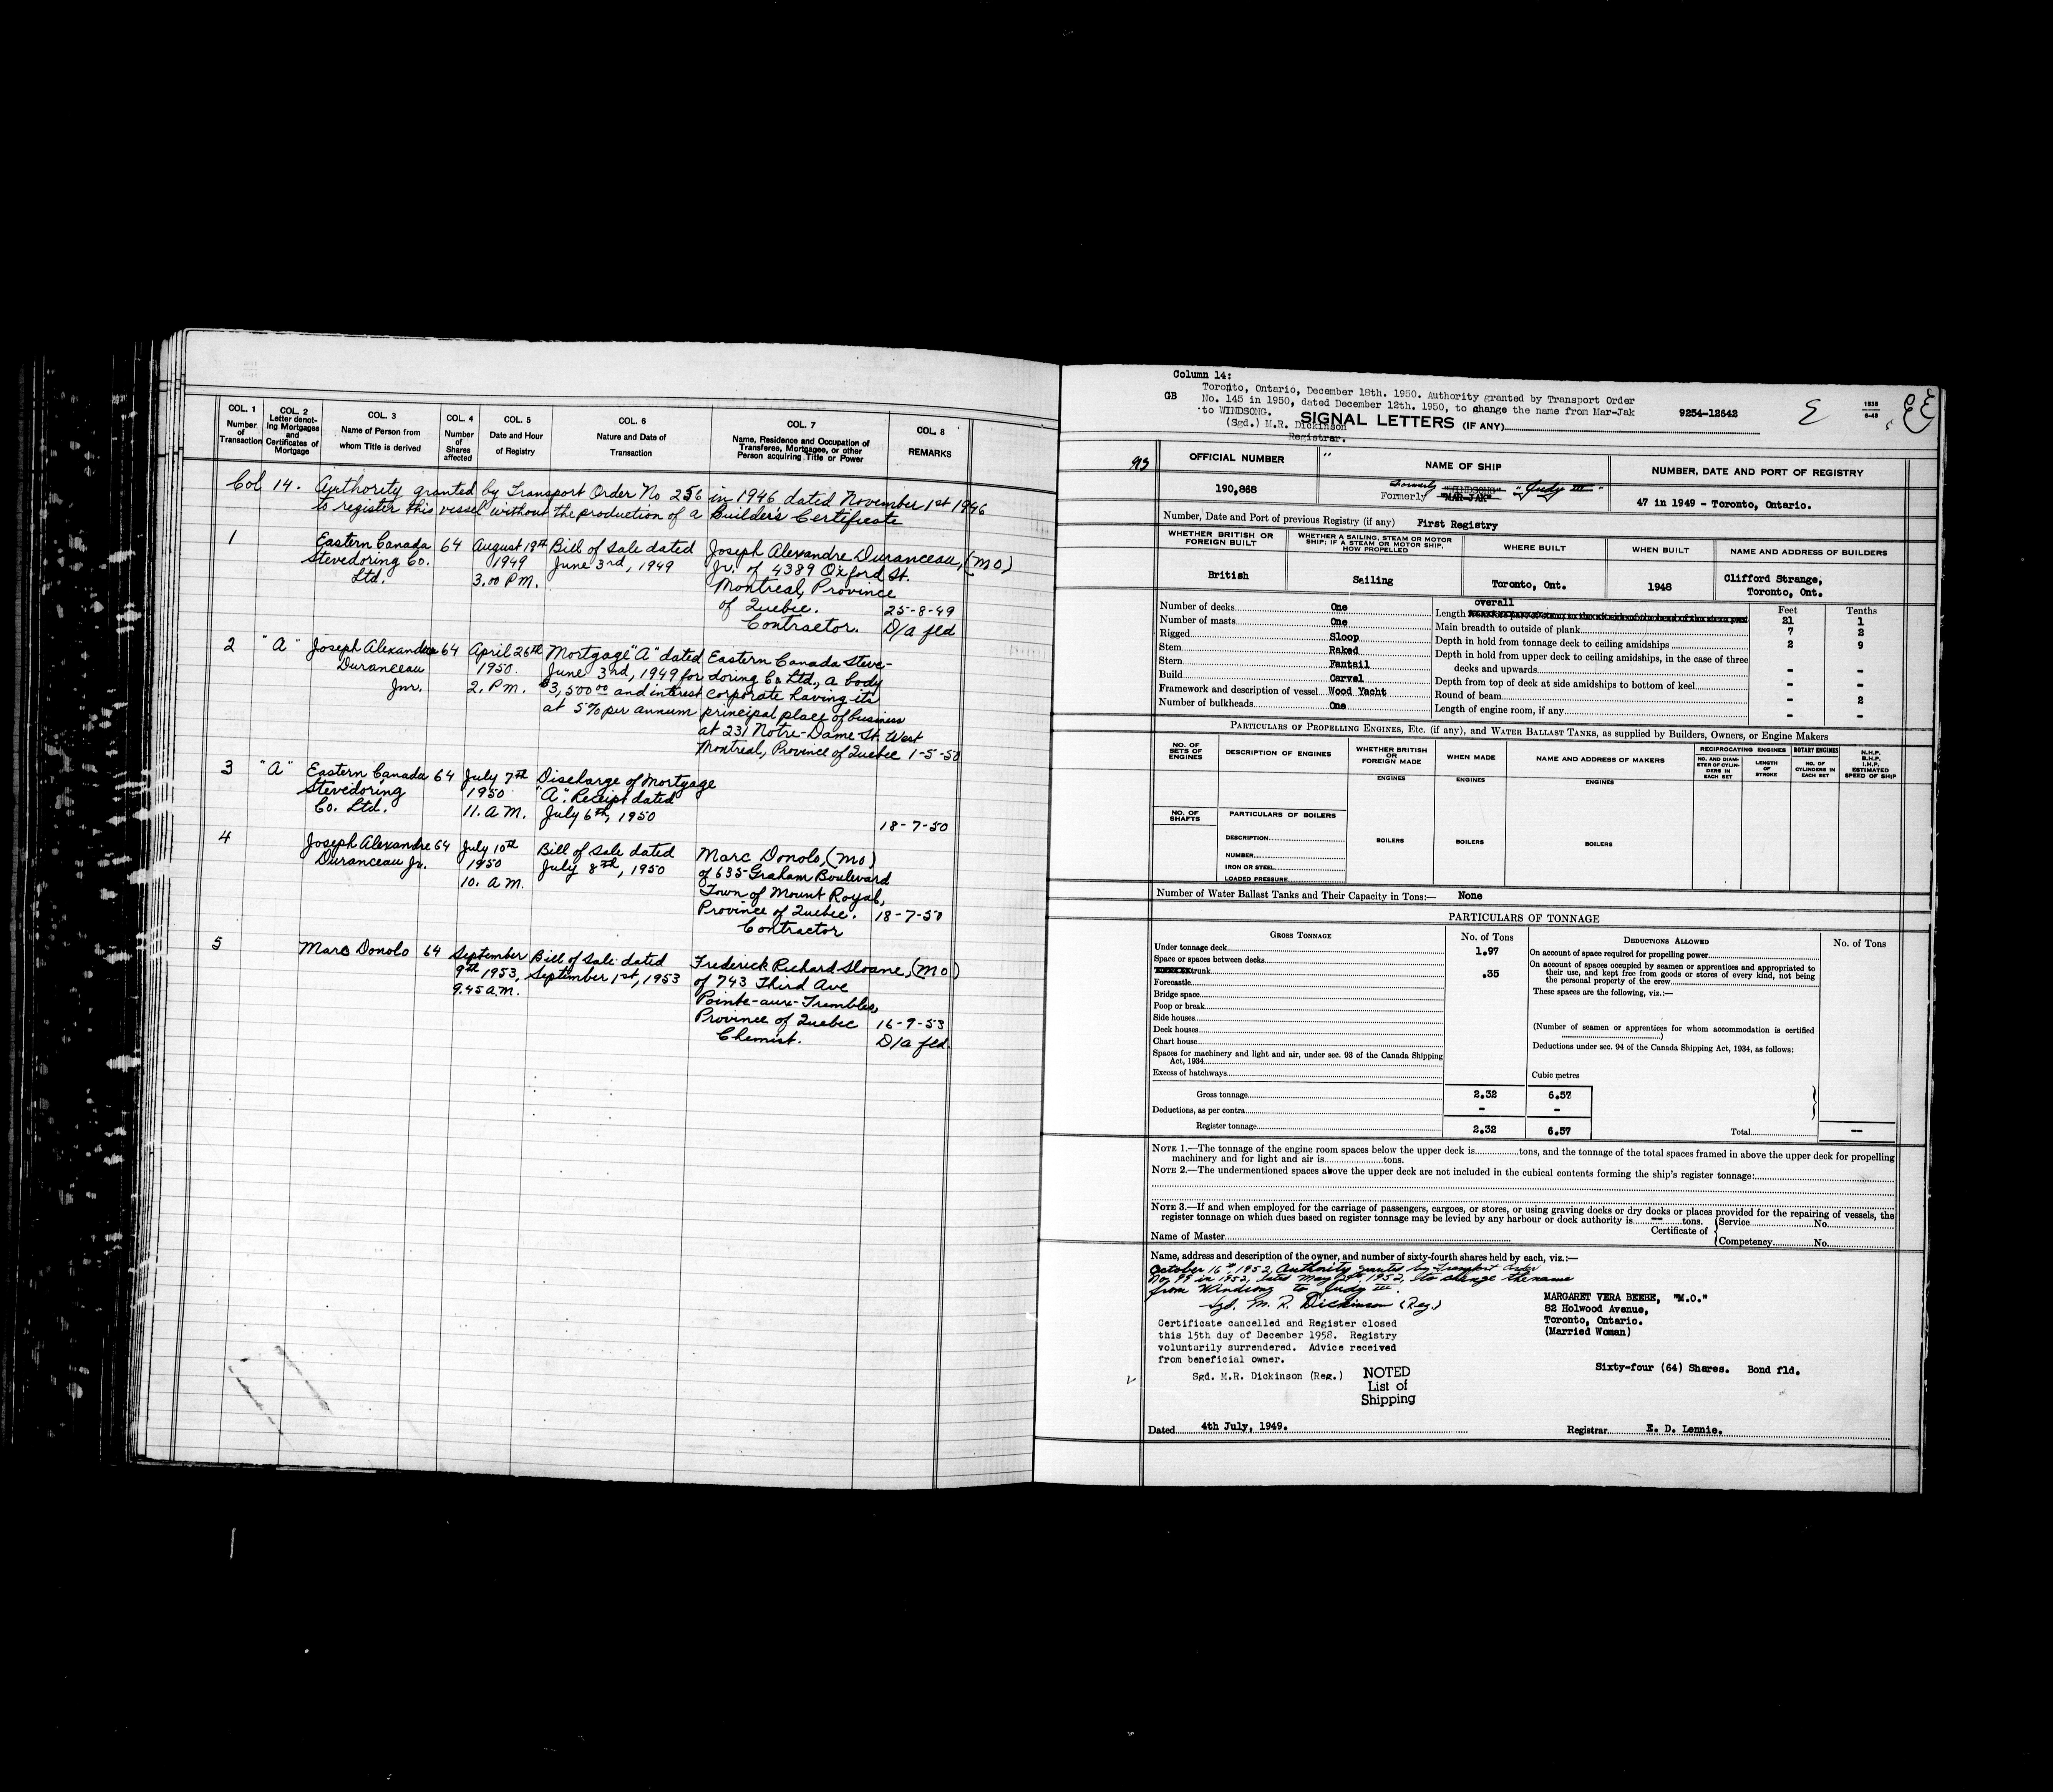 COL. 1
Number
of
Transaction
COL. 2
Letter denot-
ing Mortgages
and
Certificates of
Mortgage
COL. 3
Name of Person from
whom Title is derived
COL. 4
Number
of
Shares
affected
COL. 5
Date and Hour
of Registry
COL. 6
Nature and Date of
Transaction
COL. 7
Name, Residence and Occupation of
Transferee, Mortgagee, or other
Person acquiring Title or Power
COL. 8
REMARKS
Col 14. Authority granted by Transport Order No 256 in 1946 dated November 1st 1946
to register this vessel without the production of a Builder's Certificate
1
Eastern Canada
Stevedoring Co.
Ltd.
64
August 19th
1949
3.00 P.M.
Bill of Sale dated
June 3rd, 1949
Joseph Alexandre Duranceau, (MO)
Jr. of 4389 Oxford St.
Montreal, Province
of Quebec.
Contractor.
25-8-49
D/a fld
2
"A"
Joseph Alexandre
Duranceau
Jnr.
64
April 26th
1950
2. P.M.
Mortgage "A" dated
June 3rd, 1949 for
$3,500.00 and interest
at 5% per annum
Eastern Canada Steve-
doring Co Ltd., a body
corporate having its
principal place of business
at 231 Notre-Dame St. West
Montreal, Province of Quebec
1-5-50
3
"A"
Eastern Canada
Stevedoring
Co. Ltd.
64
July 7th
1950
11. A.M.
Discharge of Mortgage
"A". Receipt dated
July 6th, 1950
18-7-50
4
Joseph Alexandre
Duranceau Jr.
64
July 10th
1950
10. A.M.
Bill of Sale dated
July 8th, 1950
Marc Donolo, (MO)
of 635 Graham Boulevard
Town of Mount Royal,
Province of Quebec.
Contractor
18-7-50
5
Marc Donolo
64
September
9th 1953,
9.45 A.M.
Bill of Sale dated
September 1st, 1953
Frederick Richard Sloane, (MO)
of 743 Third Ave
Pointe-aux-Trembles,
Province of Quebec
Chemist.
16-9-53
D/a fld.
Column 14:
GB
Toronto, Ontario, December 18th. 1950. Authority granted by Transport Order
No. 145 in 1950, dated December 12th. 1950, to change the name from Mar-Jak
to WINDSONG.
(Sgd.) M.R. Dickinson
Registrar.
SIGNAL LETTERS (IF ANY)
9254-12642
OFFICIAL NUMBER
190,868
NAME OF SHIP
Formerly "WINDSONG" "Judy III"
Formerly "MAR-JAK"
NUMBER, DATE AND PORT OF REGISTRY
47 in 1949 - Toronto, Ontario.
Number, Date and Port of previous Registry (if any) First Registry
WHETHER BRITISH OR
FOREIGN BUILT
British
WHETHER A SAILING, STEAM OR MOTOR
SHIP; IF A STEAM OR MOTOR SHIP,
HOW PROPELLED
Sailing
WHERE BUILT
Toronto, Ont.
WHEN BUILT
1948
NAME AND ADDRESS OF BUILDERS
Clifford Strange,
Toronto, Ont.
Number of decks One
Number of masts One
Rigged Sloop
Stem Raked
Stern Fantail
Build Carvel
Framework and description of vessel Wood Yacht
Number of bulkheads One
Feet Tenths
overall
Length 21 1
Main breadth to outside of plank 7 2
Depth in hold from tonnage deck to ceiling amidships 2 9
Depth in hold from upper deck to ceiling amidships, in the case of three
decks and upwards - -
Depth from top of deck at side amidships to bottom of keel - -
Round of beam - 2
Length of engine room, if any - -
PARTICULARS OF PROPELLING ENGINES, ETC. (if any), and WATER BALLAST TANKS, as supplied by Builders, Owners, or Engine Makers
NO. OF
SETS OF
ENGINES
DESCRIPTION OF ENGINES
WHETHER BRITISH
OR
FOREIGN MADE
WHEN MADE
NAME AND ADDRESS OF MAKERS
RECIPROCATING ENGINES
NO. AND DIAM-
ETER OF CYLIN-
DERS IN
EACH SET
LENGTH
OF
STROKE
ROTARY ENGINES
NO. OF
CYLINDERS IN
EACH SET
N.H.P.
B.H.P.
I.H.P.
ESTIMATED
SPEED OF SHIP
ENGINES
ENGINES
ENGINES
NO. OF
SHAFTS
PARTICULARS OF BOILERS
DESCRIPTION
NUMBER
IRON OR STEEL
LOADED PRESSURE
BOILERS
BOILERS
BOILERS
Number of Water Ballast Tanks and Their Capacity in Tons:— None
PARTICULARS OF TONNAGE
GROSS TONNAGE
No. of Tons
Under tonnage deck 1.97
Space or spaces between decks
trunk .35
Forecastle
Bridge space
Poop or break
Side houses
Deck houses
Chart house
Spaces for machinery and light and air, under sec. 93 of the Canada Shipping
Act, 1934
Excess of hatchways
Cubic metres
Gross tonnage 2.32 6.57
Deductions, as per contra - -
Register tonnage 2.32 6.57
DEDUCTIONS ALLOWED
No. of Tons
On account of space required for propelling power
On account of spaces occupied by seamen or apprentices and appropriated to
their use, and kept free from goods or stores of every kind, not being
the personal property of the crew
These spaces are the following, viz.:—
(Number of seamen or apprentices for whom accommodation is certified
)
Deductions under sec. 94 of the Canada Shipping Act, 1934, as follows:
Total --
NOTE 1.—The tonnage of the engine room spaces below the upper deck is tons, and the tonnage of the total spaces framed in above the upper deck for propelling
machinery and for light and air is tons.
NOTE 2.—The undermentioned spaces above the upper deck are not included in the cubical contents forming the ship's register tonnage:
NOTE 3.—If and when employed for the carriage of passengers, cargoes, or stores, or using graving docks or dry docks or places provided for the repairing of vessels, the
register tonnage on which dues based on register tonnage may be levied by any harbour or dock authority is -- tons.
Name of Master
Certificate of
Service No.
Competency No.
Name, address and description of the owner, and number of sixty-fourth shares held by each, viz.:—
October 16th 1952, Authority granted by Transport Order
No. 99 in 1952, dated May 1952, to change the name
from Windsong to Judy III.
Sgd. M. R. Dickinson (Reg.)
MARGARET VERA BEEBE, "M.O."
82 Holwood Avenue,
Toronto, Ontario.
(Married Woman)
Sixty-four (64) Shares. Bond fld.
Certificate cancelled and Register closed
this 15th day of December 1958. Registry
voluntarily surrendered. Advice received
from beneficial owner.
Sgd. M.R. Dickinson (Reg.)
NOTED
List of
Shipping
Dated 4th July, 1949.
Registrar E. D. Lennie.